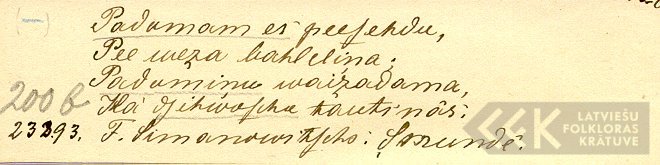 Padomam es peesehdu,
Pee weza bahlelina:
Padominu waizadama,
Kà dsihwoschu tautinâs.
200 b
23293. F. Simanowitschs: Skrundê.
LATVIEŠU
FOLKLORAS
KRĀTUVE